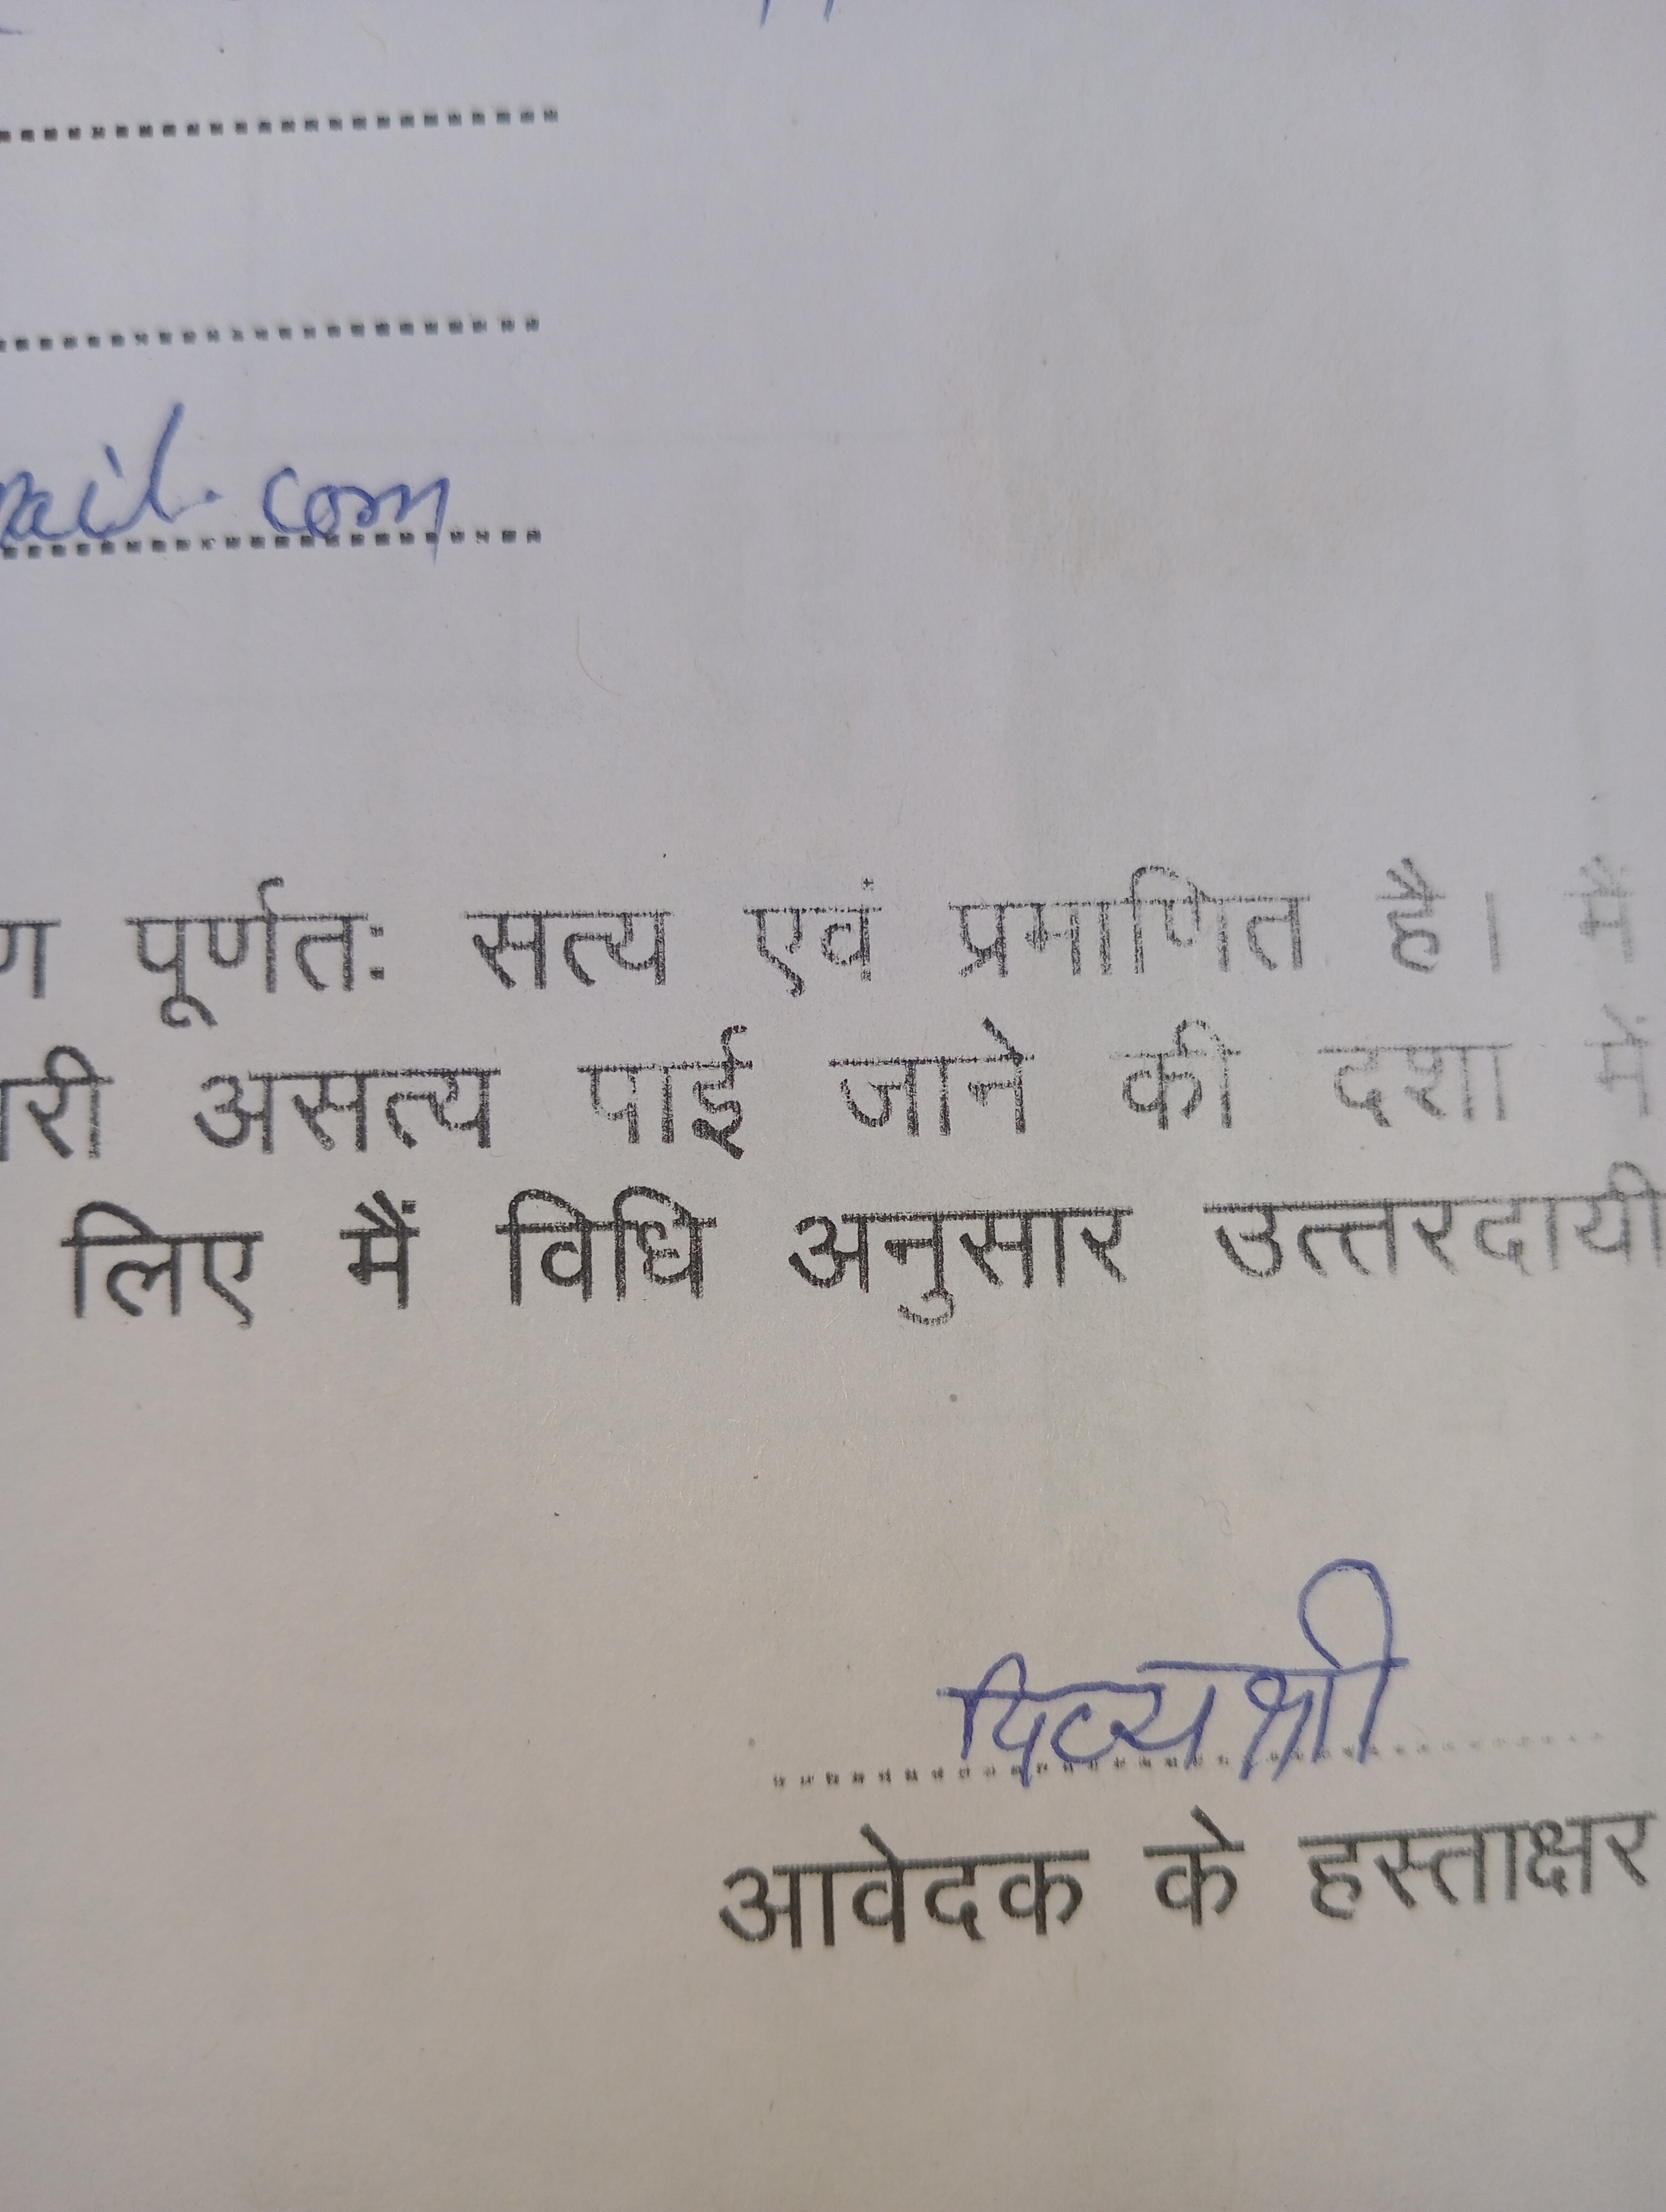 ail. com
ण पूर्णतः सत्य एवं प्रमाणित है। मैं
ारी असत्य पाई जाने की दशा में
लिए मैं विधि अनुसार उत्तरदायी
दिव्यश्री
आवेदक के हस्ताक्षर